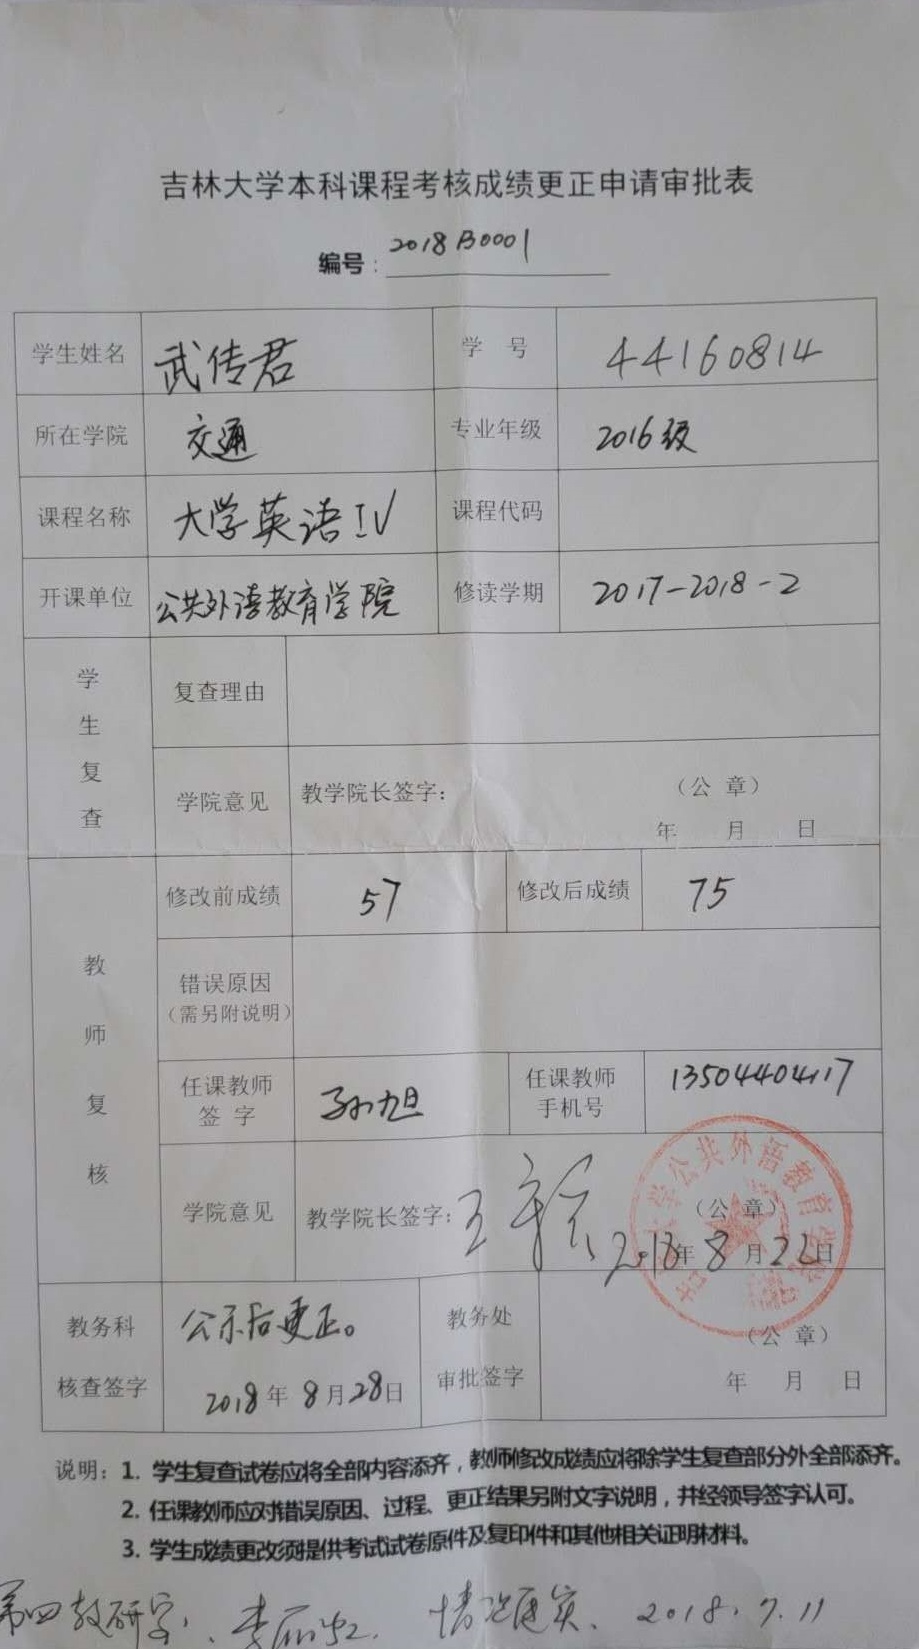 吉林大学本科课程考核成绩更正申请审批表
编号：2018B0001
学生姓名 武传君 学 号 44160814
所在学院 交通 专业年级 2016级
课程名称 大学英语IV 课程代码
开课单位 公共外语教育学院 修读学期 2017-2018-2
学生复查
复查理由
学院意见 教学院长签字： （公 章）
年 月 日
教师复核
修改前成绩 57 修改后成绩 75
错误原因
（需另附说明）
任课教师 签 字 孙旭 任课教师 手机号 13504404117
学院意见 教学院长签字： 王 （公 章）
2018年8月22日
学公共外语教育学院
教务科 核查签字 公示后更正。
2018年8月28日
教务处 审批签字 （公 章）
年 月 日
说明：1. 学生复查试卷应将全部内容添齐，教师修改成绩应将除学生复查部分外全部添齐。
2. 任课教师应对错误原因、过程、更正结果另附文字说明，并经领导签字认可。
3. 学生成绩更改须提供考试试卷原件及复印件和其他相关证明材料。
第四教研室、李 情况属实、2018.7.11